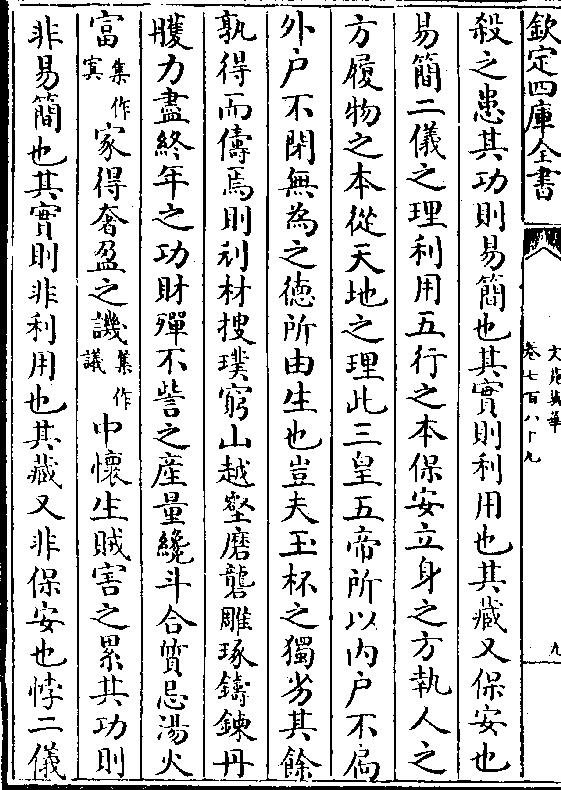 欽定四庫全書
文苑英華
卷七百八十九
九
殺之患其功則易簡也其實則利用也其藏又保安也
易簡二儀之理利用五行之本保安立身之方執人之
方履物之本從天地之理此三皇五帝所以内户不扄
外户不閉無為之徳所由生也豈夫玉杯之獨劣其餘
孰得而儔焉則刋材捜璞窮山越壑磨礱雕琢鑄鍊丹
雘力盡終年之功財殫不訾之産量纔斗合質忌湯火
富集作寘家得奢盈之譏集作議中懷生賊害之累其功則
非易簡也其實則非利用也其藏又非保安也悖二儀